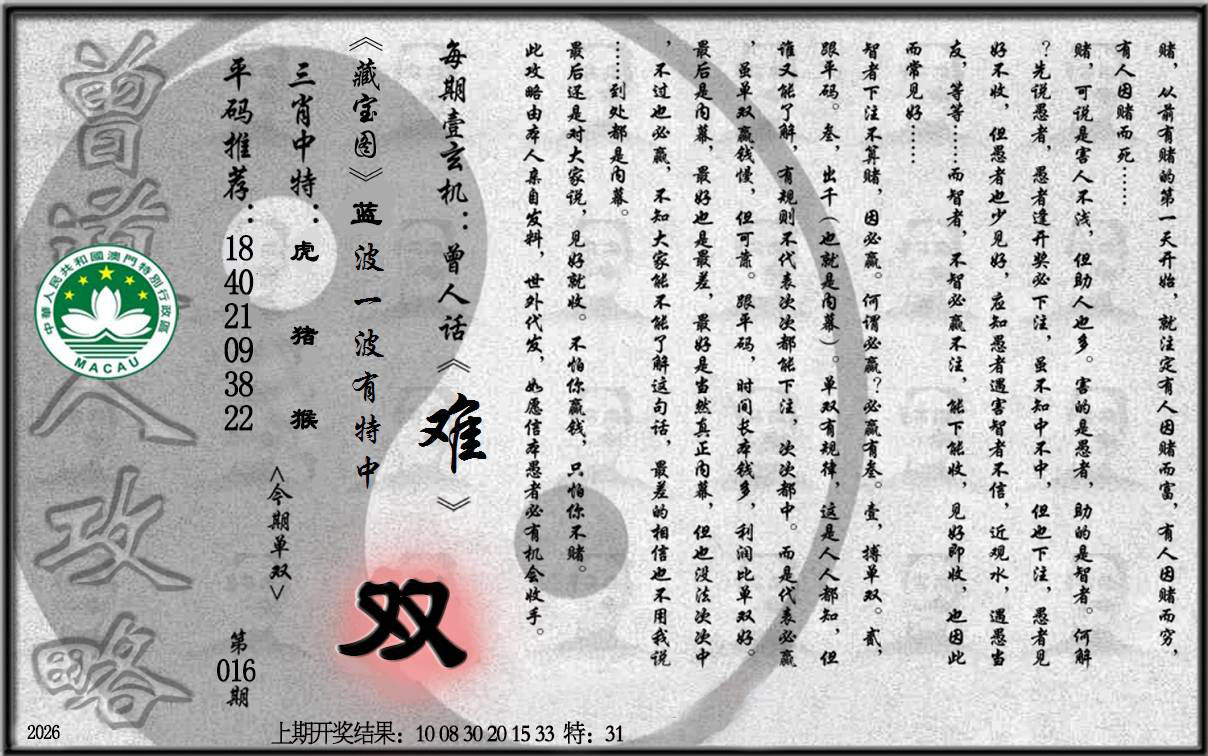 赌，从前有赌的第一天开始，就注定有人因赌而富，有人因赌而穷，
有人因赌而死……
赌，可说是害人不浅，但助人也多。害的是愚者，助的是智者。何解
？先说愚者，愚者逢开奖必下注，虽不知中不中，但也下注，愚者见
好不收，但愚者也少见好，应知愚者遇害智者不信，近观水，遇愚当
友，等等……而智者，不智必赢不注，能下能收，见好即收，也因此
而常见好……
智者下注不算赌，因必赢。何谓必赢？必赢有叁。壹，搏单双。贰，
跟平码。叁，出千（也就是内幕）。单双有规律，这是人人都知，但
谁又能了解，有规则不代表次次都能下注，次次都中。而是代表必赢
，虽单双赢钱慢，但可靠。跟平码，时间长本钱多，利润比单双好。
最后是内幕，最好也是最差，最好是当然真正内幕，但也没法次次中
，不过也必赢，不知大家能不能了解这句话，最差的相信也不用我说
……到处都是内幕。
最后还是对大家说，见好就收。不怕你赢钱，只怕你不赌。
此攻略由本人亲自发料，世外代发，如愿信本愚者必有机会收手。
每期壹玄机：曾人话《难》
《藏宝图》蓝波一波有特中
双
三肖中特：虎 猪 猴
<今期单双>
平码推荐：18 40 21 09 38 22
第016期
曾道人攻略
中華人民共和國澳門特別行政區
MACAU
2026
上期开奖结果：10 08 30 20 15 33 特：31